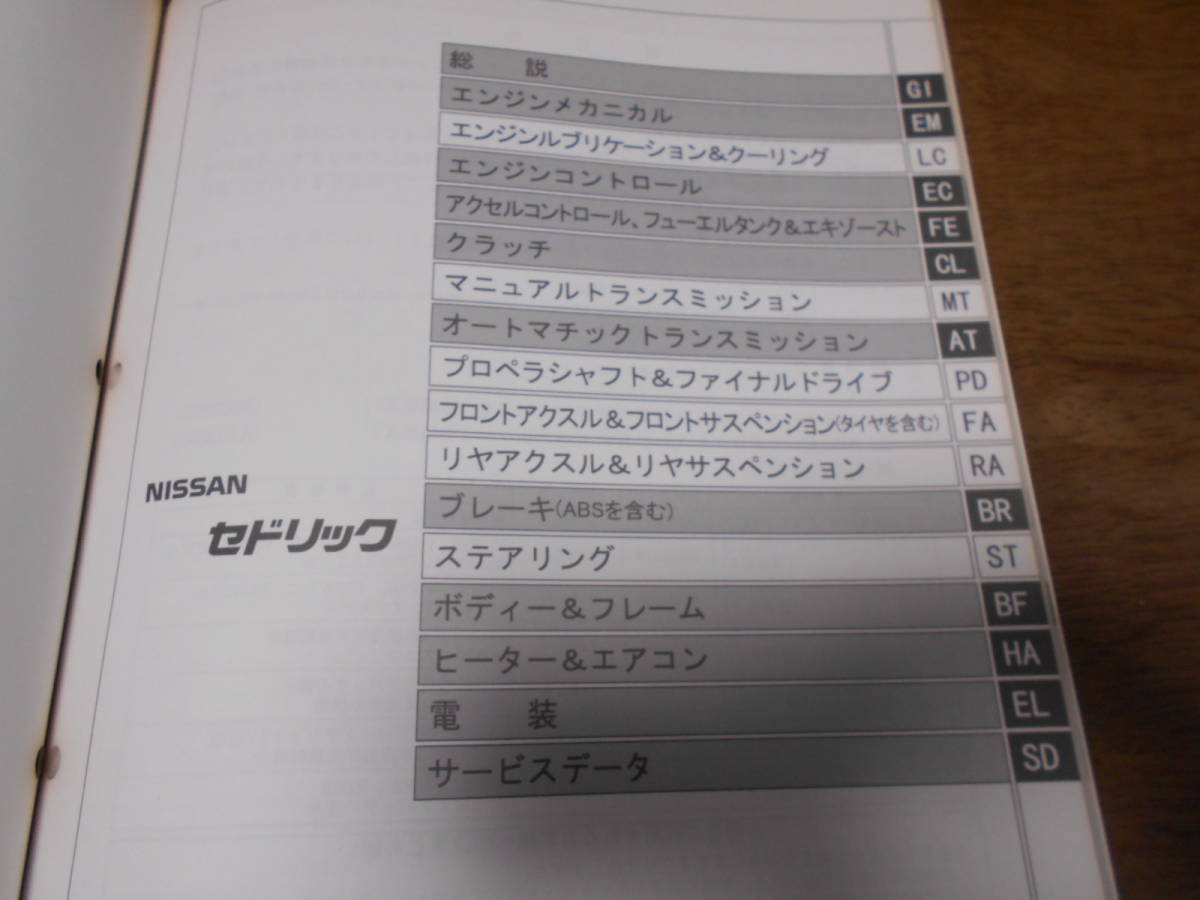 総 説 GI
エンジンメカニカル EM
エンジンルブリケーション&クーリング LC
エンジンコントロール EC
アクセルコントロール、フューエルタンク&エキゾースト FE
クラッチ CL
マニュアルトランスミッション MT
オートマチックトランスミッション AT
プロペラシャフト&ファイナルドライブ PD
フロントアクスル&フロントサスペンション(タイヤを含む) FA
リヤアクスル&リヤサスペンション RA
ブレーキ(ABSを含む) BR
ステアリング ST
ボディー&フレーム BF
ヒーター&エアコン HA
電 装 EL
サービスデータ SD
NISSAN
セドリック